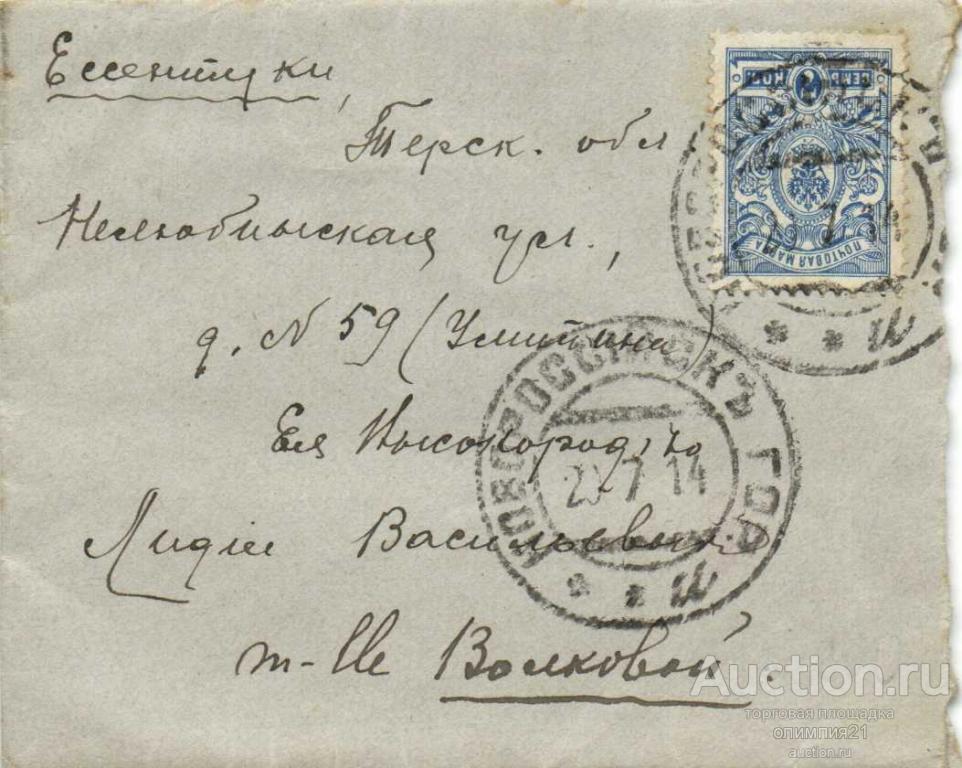 Ессентуки,
Терск. обл
Нелюбинская ул.,
д. N 59 (Улитина)
Ея Высокород̑ію
Лидіи Васильевнѣ
m-lle Волковой.
СЕМЬ 7 КОП
ПОЧТОВАЯ МАРКА
7 14
НОВОРОССІЙСКЪ ГОР.
20 7 14
Auction.ru
торговая площадка
олимпия21
auction.ru